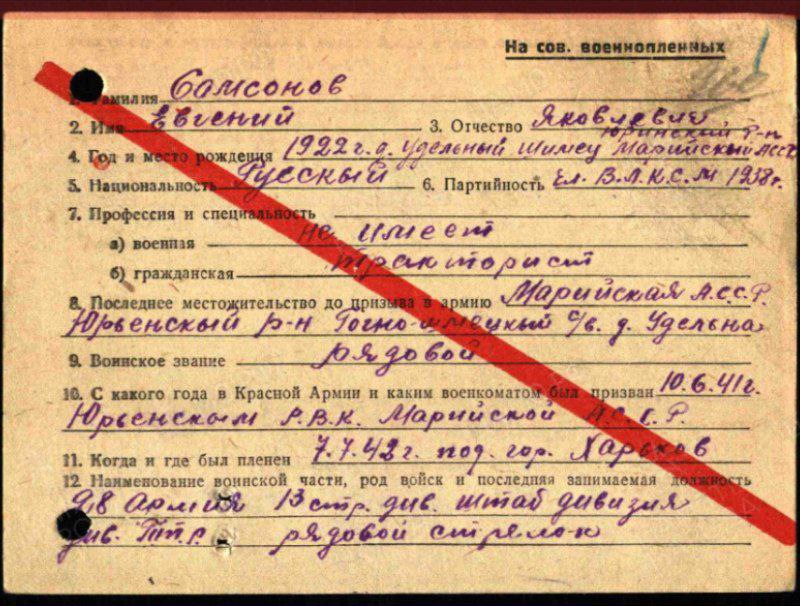 На сов. военнопленных
1. Фамилия Самсонов
2. Имя Евгений 3. Отчество Яковлевич
Юринский р-н
4. Год и место рождения 1922 г. д. Удельный Шимец Марийский АССР
5. Национальность Русский 6. Партийность чл. В.Л.К.С.М 1938 г.
7. Профессия и специальность
а) военная не имеет
б) гражданская тракторист
8. Последнее местожительство до призыва в армию Марийская А.С.С.Р.
Юрьенский р-н с/в. д. Удельна
9. Воинское звание рядовой
10. С какого года в Красной Армии и каким военкоматом был призван 10.6.41 г.
Юрьенским Р.В.К. Марийской А.С.С.Р.
11. Когда и где был пленен 7.7.42 г. под. гор. Харьков
12. Наименование воинской части, род войск и последняя занимаемая должность
армия 13 стр. див. штаб дивизия
рядовой стрелок